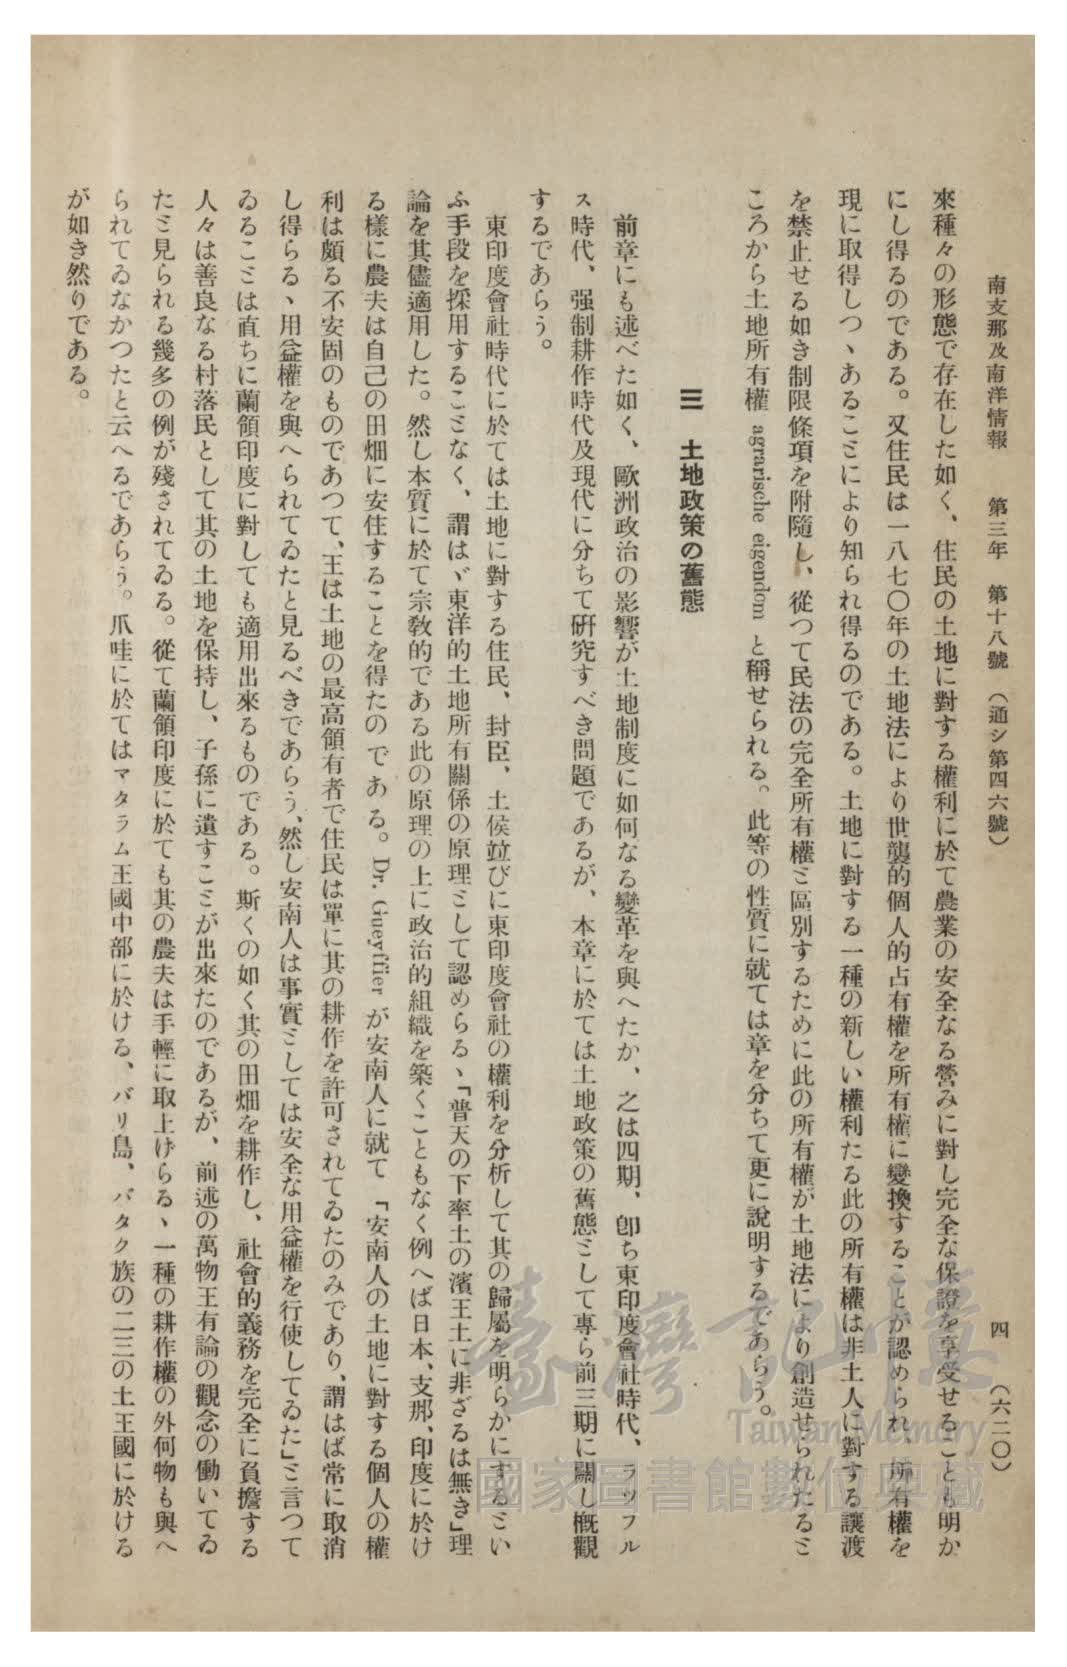 南支那及南洋情報　第三年　第十八號　（通シ第四六號）　四　（六二〇）
來種々の形態で存在した如く、住民の土地に對する權利に於て農業の安全なる營みに對し完全な保證を享受せることも明か
にし得るのである。又住民は一八七〇年の土地法により世襲的個人的占有權を所有權に變換することが認められ、所有權を
現に取得しつヽあることにより知られ得るのである。土地に對する一種の新しい權利たる此の所有權は非土人に對する讓渡
を禁止せる如き制限條項を附隨し、從つて民法の完全所有權と區別するために此の所有權が土地法により創造せられたると
ころから土地所有權 agrarische eigendom と稱せられる。此等の性質に就ては章を分ちて更に說明するであらう。
三　土地政策の舊態
前章にも述べた如く、歐洲政治の影響が土地制度に如何なる變革を與へたか、之は四期、卽ち東印度會社時代、ラッフル
ス時代、强制耕作時代及現代に分ちて硏究すべき問題であるが、本章に於ては土地政策の舊態として專ら前三期に關し概觀
するであらう。
東印度會社時代に於ては土地に對する住民、封臣、土侯竝びに東印度會社の權利を分析して其の歸屬を明らかにするとい
ふ手段を採用することなく、謂はゞ東洋的土地所有關係の原理として認めらるヽ「普天の下率土の濱王土に非ざるは無き」理
論を其儘適用した。然し本質に於て宗敎的である此の原理の上に政治的組織を築くこともなく例へば日本、支那、印度に於け
る樣に農夫は自己の田畑に安住することを得たのである。Dr. Gueyffier が安南人に就て「安南人の土地に對する個人の權
利は頗る不安固のものであつて、王は土地の最高領有者で住民は單に其の耕作を許可されてゐたのみであり、謂はば常に取消
し得らるヽ用益權を與へられてゐたと見るべきであらう、然し安南人は事實としては安全な用益權を行使してゐた」と言つて
ゐることは直ちに蘭領印度に對しても適用出來るものである。斯くの如く其の田畑を耕作し、社會的義務を完全に負擔する
人々は善良なる村落民として其の土地を保持し、子孫に遺すことが出來たのであるが、前述の萬物王有論の觀念の働いてゐ
たと見られる幾多の例が殘されてゐる。從て蘭領印度に於ても其の農夫は手輕に取上げらるヽ一種の耕作權の外何物も與へ
られてゐなかつたと云へるであらう。爪哇に於てはマタラム王國中部に於ける、バリ島、バタク族の二三の土王國に於ける
が如き然りである。
臺灣記憶
Taiwan Memory
國家圖書館數位典藏